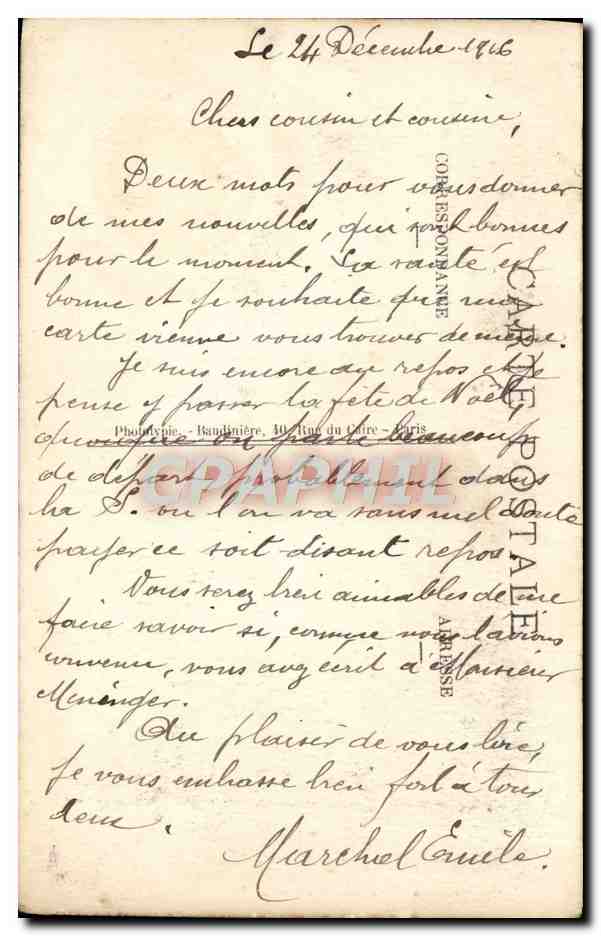 Le 24 Décembre 1916
Chers cousin et cousine,
Deux mots pour vous donner
de mes nouvelles, qui sont bonnes
pour le moment. La santé est
bonne et je souhaite que ma
carte vienne vous trouver de même.
Je suis encore au repos et je
pense y passer la fête de Noël,
quoique on parle beaucoup
de départ probablement dans
la S. ou l'on va sans nul doute
payer ce soit-disant repos.
Vous serez bien aimables de me
faire savoir si, comme nous l'avions
convenu, vous avez écrit à Monsieur
Au plaisir de vous lire,
je vous embrasse bien fort à tous
deux.
Marchal Emile.
CARTE POSTALE
CORRESPONDANCE
ADRESSE
Phototypie. - Baudinière, 40, Rue du Caire - Paris
CPAPHIL